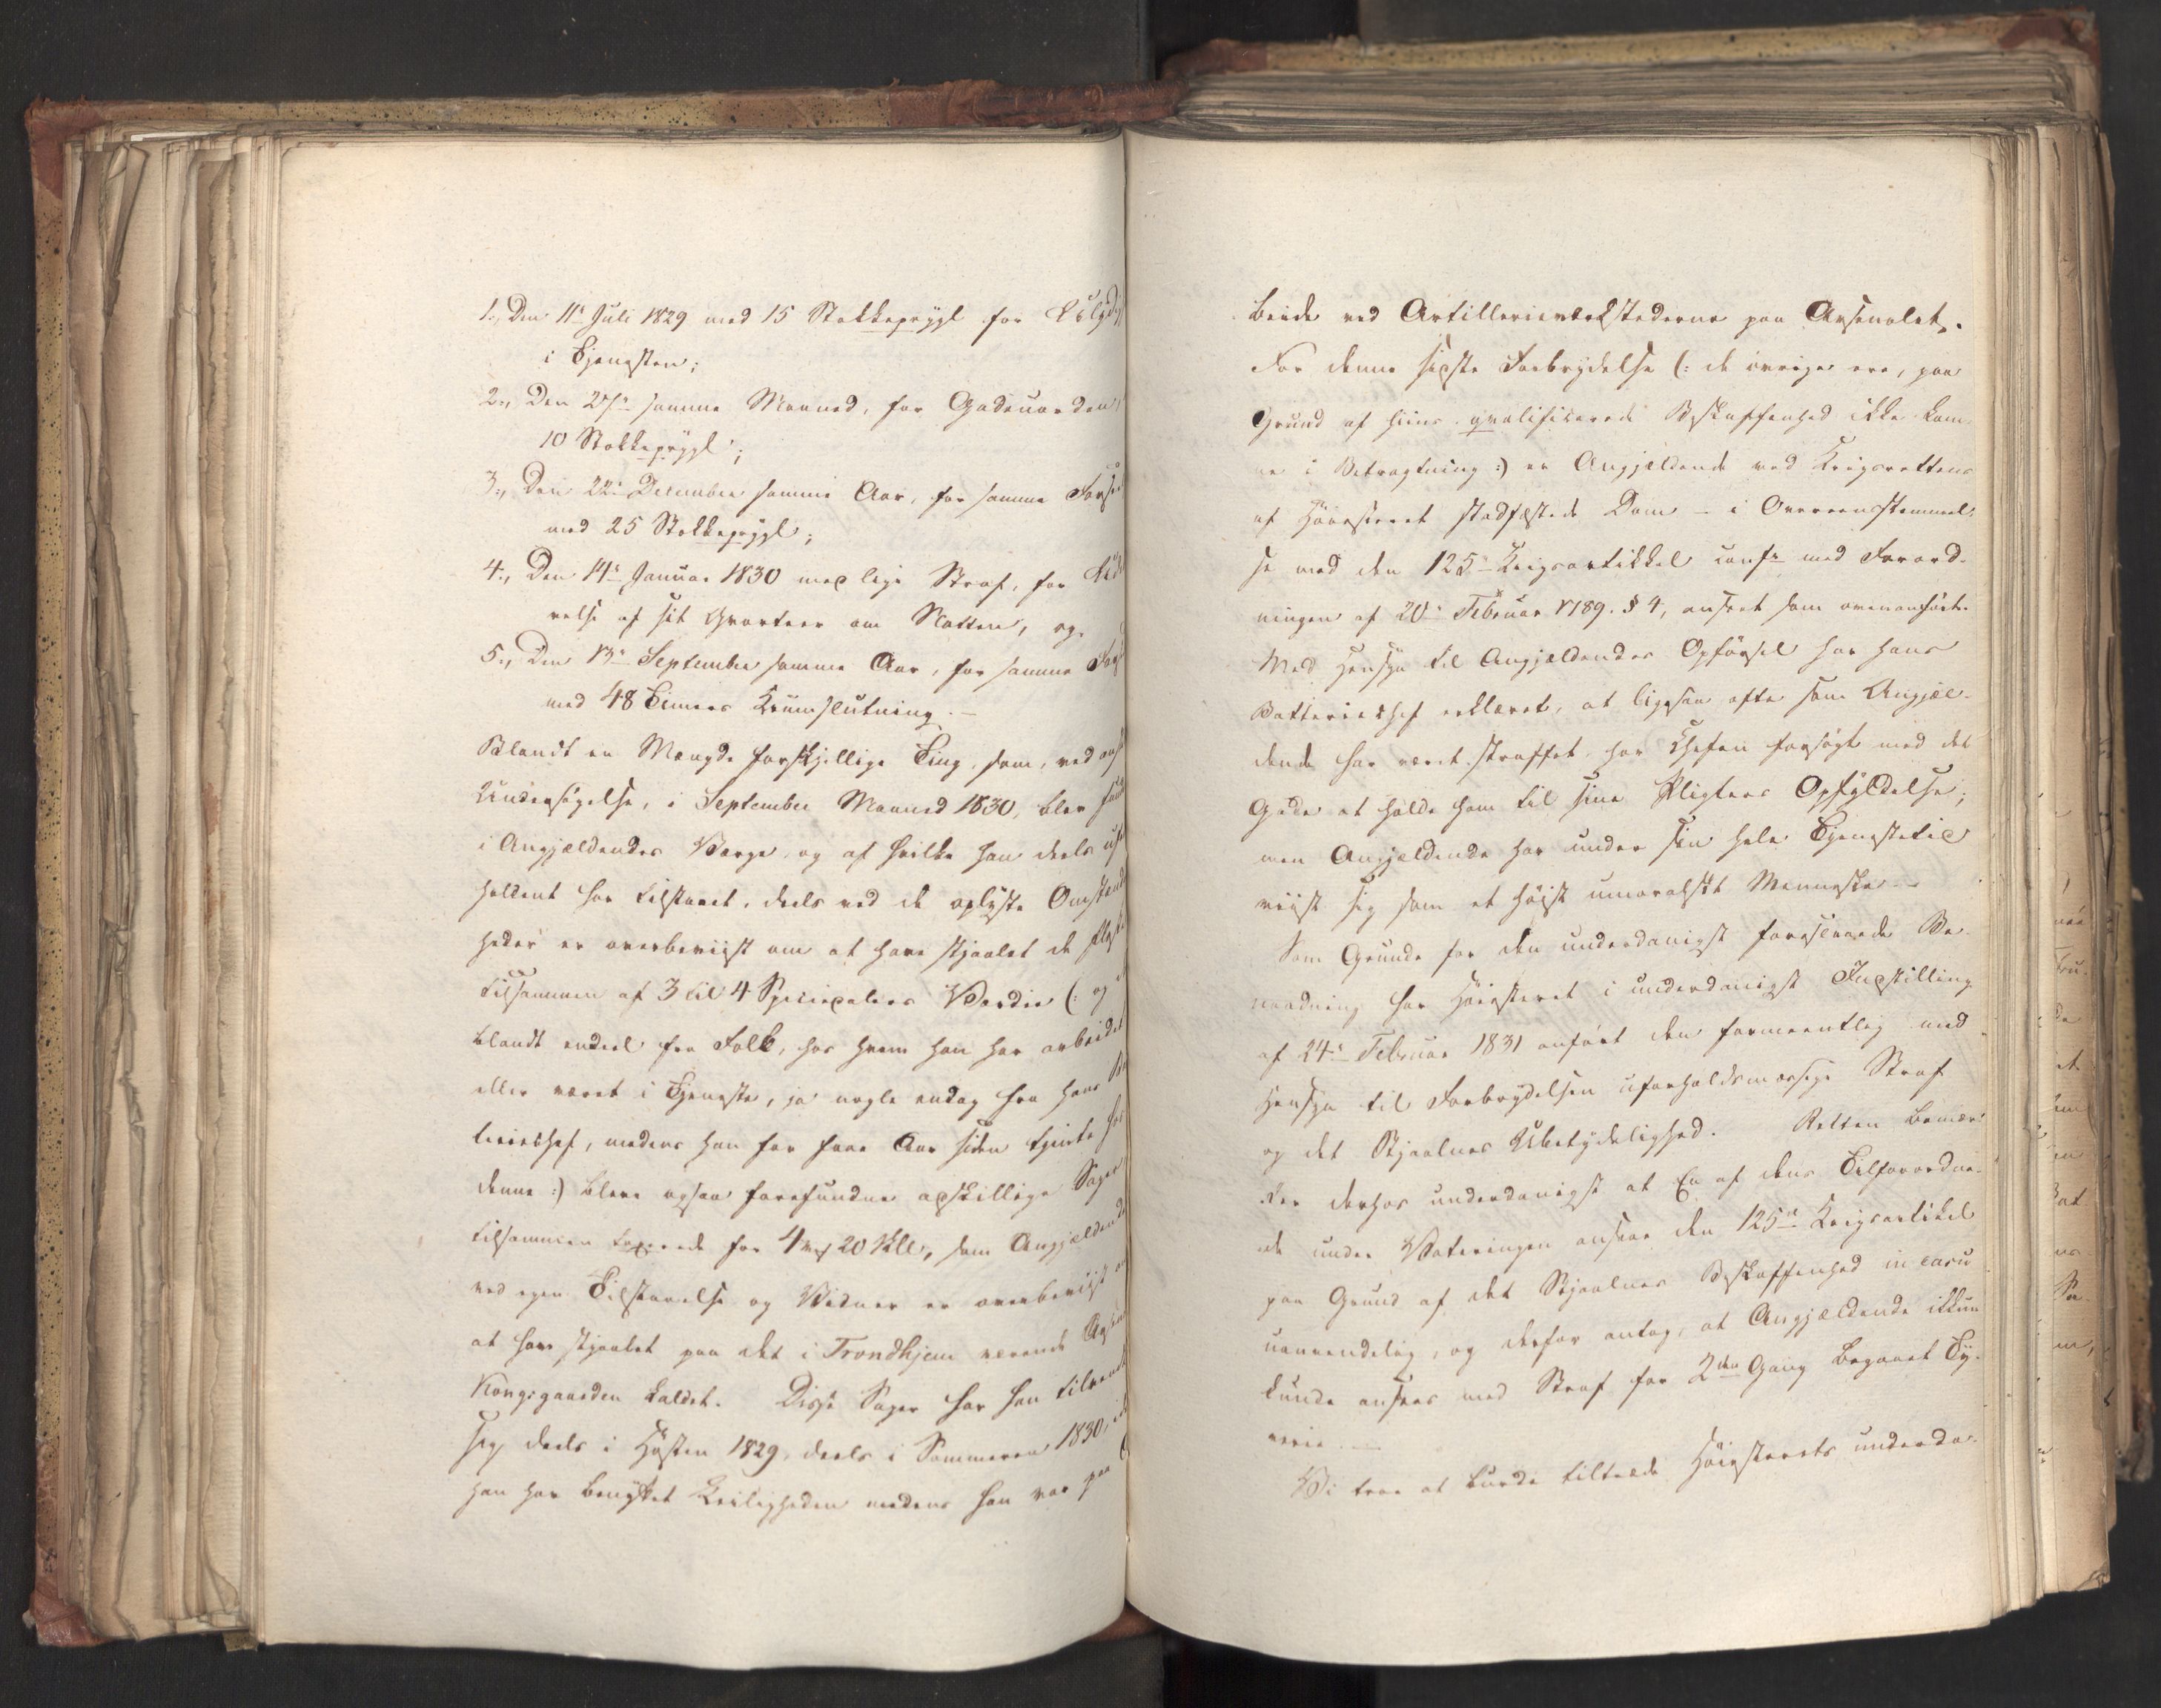 1., Den 11te Juli 1829 med 15 Stokkeprygl for
i Tjenesten;
2., Den samme Maaned, for Gadeuorden,
10 Stokkeprygl;
3., Den 22de December samme Aar, for samme Forse
med 25 Stokkeprygl;
4., Den 14de Januar 1830 med lige Straf, for
velse af sit Qvarteer om Natten, og
5., Den 13de September samme Aar, for samme
med 48 Timers Krumslutning. —
Blandt en Mængde forskjellige Ting, som, ved
Undersøgelse, i September Maaned 1830, blev
i Angjældendes Værge, og af hvilke han deels
holdent har tilstaaet, deels ved de oplyste Omstænd
heder er overbeviist om at have stjaalet de
tilsammen af 3 til 4 Speciedalers Værdie (: og
blandt endeel fra Folk, hos hvem han har arbeidet
eller været i Tjeneste, ja nogle endog fra hans
terieschef, medens han for faae Aar siden tjente hos
denne :) bleve ogsaa forefundne adskillige Sager
tilsammen taxerede for 4 20 , som Angjældende
ved egen Tilstaaelse og Vidner er overbeviist
at have stjaalet paa det i Trondhjem værende
Kongsgaarden kaldet. Disse Sager har han tilvendt
sig deels i Høsten 1829, deels i Sommeren 1830,
han har benyttet Leiligheden medens han var paa
beide ved Artillerieværkstederne paa Arsenalet.
For denne sidste Forbrydelse (: de øvrige ere, paa
Grund af hiins qvalificerede Beskaffenhed ikke kom-
ne i Betragtning :) er Angjældende ved Krigsrettens
af Høiesteret stadfæstede Dom – i Overeensstemmel-
se med den 125de Krigsartikkel confr med Forord-
ningen af 20de Februar 1789. § 4, anseet som ovenanført.
Med Hensyn til Angjældendes Opførsel har hans
Batterieschef erklæret, at ligesaa ofte som Angjæl-
dende har været straffet, har Chefen forsøgt med det
Gode at holde ham til sine Pligters Opfyldelse;
men Angjældende har under sin hele Tjenestetid
viist sig som et høist umoralskt Menneske. —
Som Grunde for den underdanigst foreslaaede Be-
naadning har Høiesteret i underdanigst Indstilling
af 24de Februar 1831 anført den formeentlig med
Hensyn til Forbrydelsen uforholdsmæssige Straf
og det Stjaalnes Ubetydelighed. Retten bemær-
ker derhos underdanigst at En af dens Tilforordne-
de under Voteringen ansaae den 125de Krigsartikel
paa Grund af det Stjaalnes Beskaffenhed in casu
uanvendelig, og derfor antog, at Angjældende ikkun
kunde ansees med Straf for 2den Gang begaaet Ty-
verie. —
Vi troe at burde tiltræde Høiesterets underda-